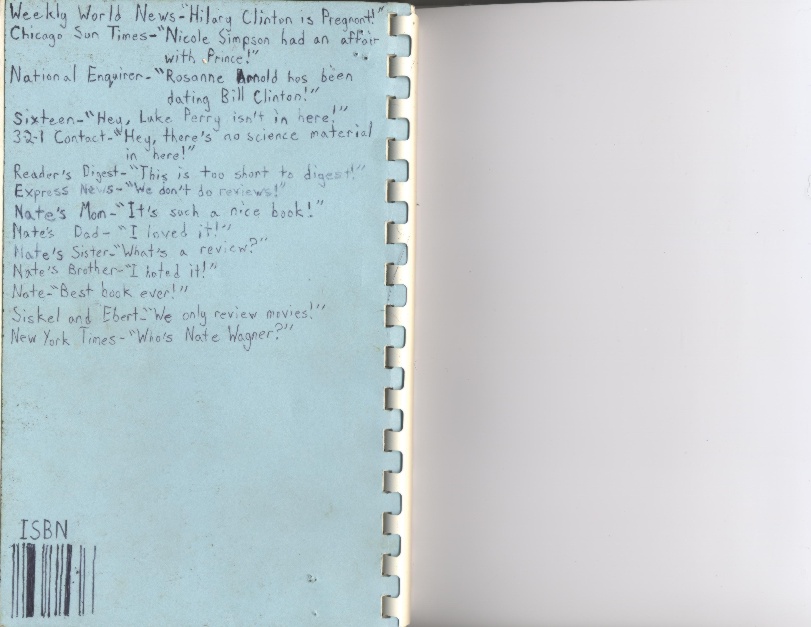 Weekly World News-"Hilary Clinton is Pregnant!"
Chicago Sun Times-"Nicole Simpson had an affair
with Prince!"
National Enquirer-"Rosanne Arnold has been
dating Bill Clinton!"
Sixteen-"Hey, Luke Perry isn't in here!"
3-2-1 Contact-"Hey, there's no science material
in here!"
Reader's Digest-"This is too short to digest!"
Express News-"We don't do reviews!"
Nate's Mom-"It's such a nice book!"
Nate's Dad-"I loved it!"
Nate's Sister-"What's a review?"
Nate's Brother-"I hated it!"
Nate-"Best book ever!"
Siskel and Ebert-"We only review movies!"
New York Times-"Who's Nate Wagner?"
ISBN